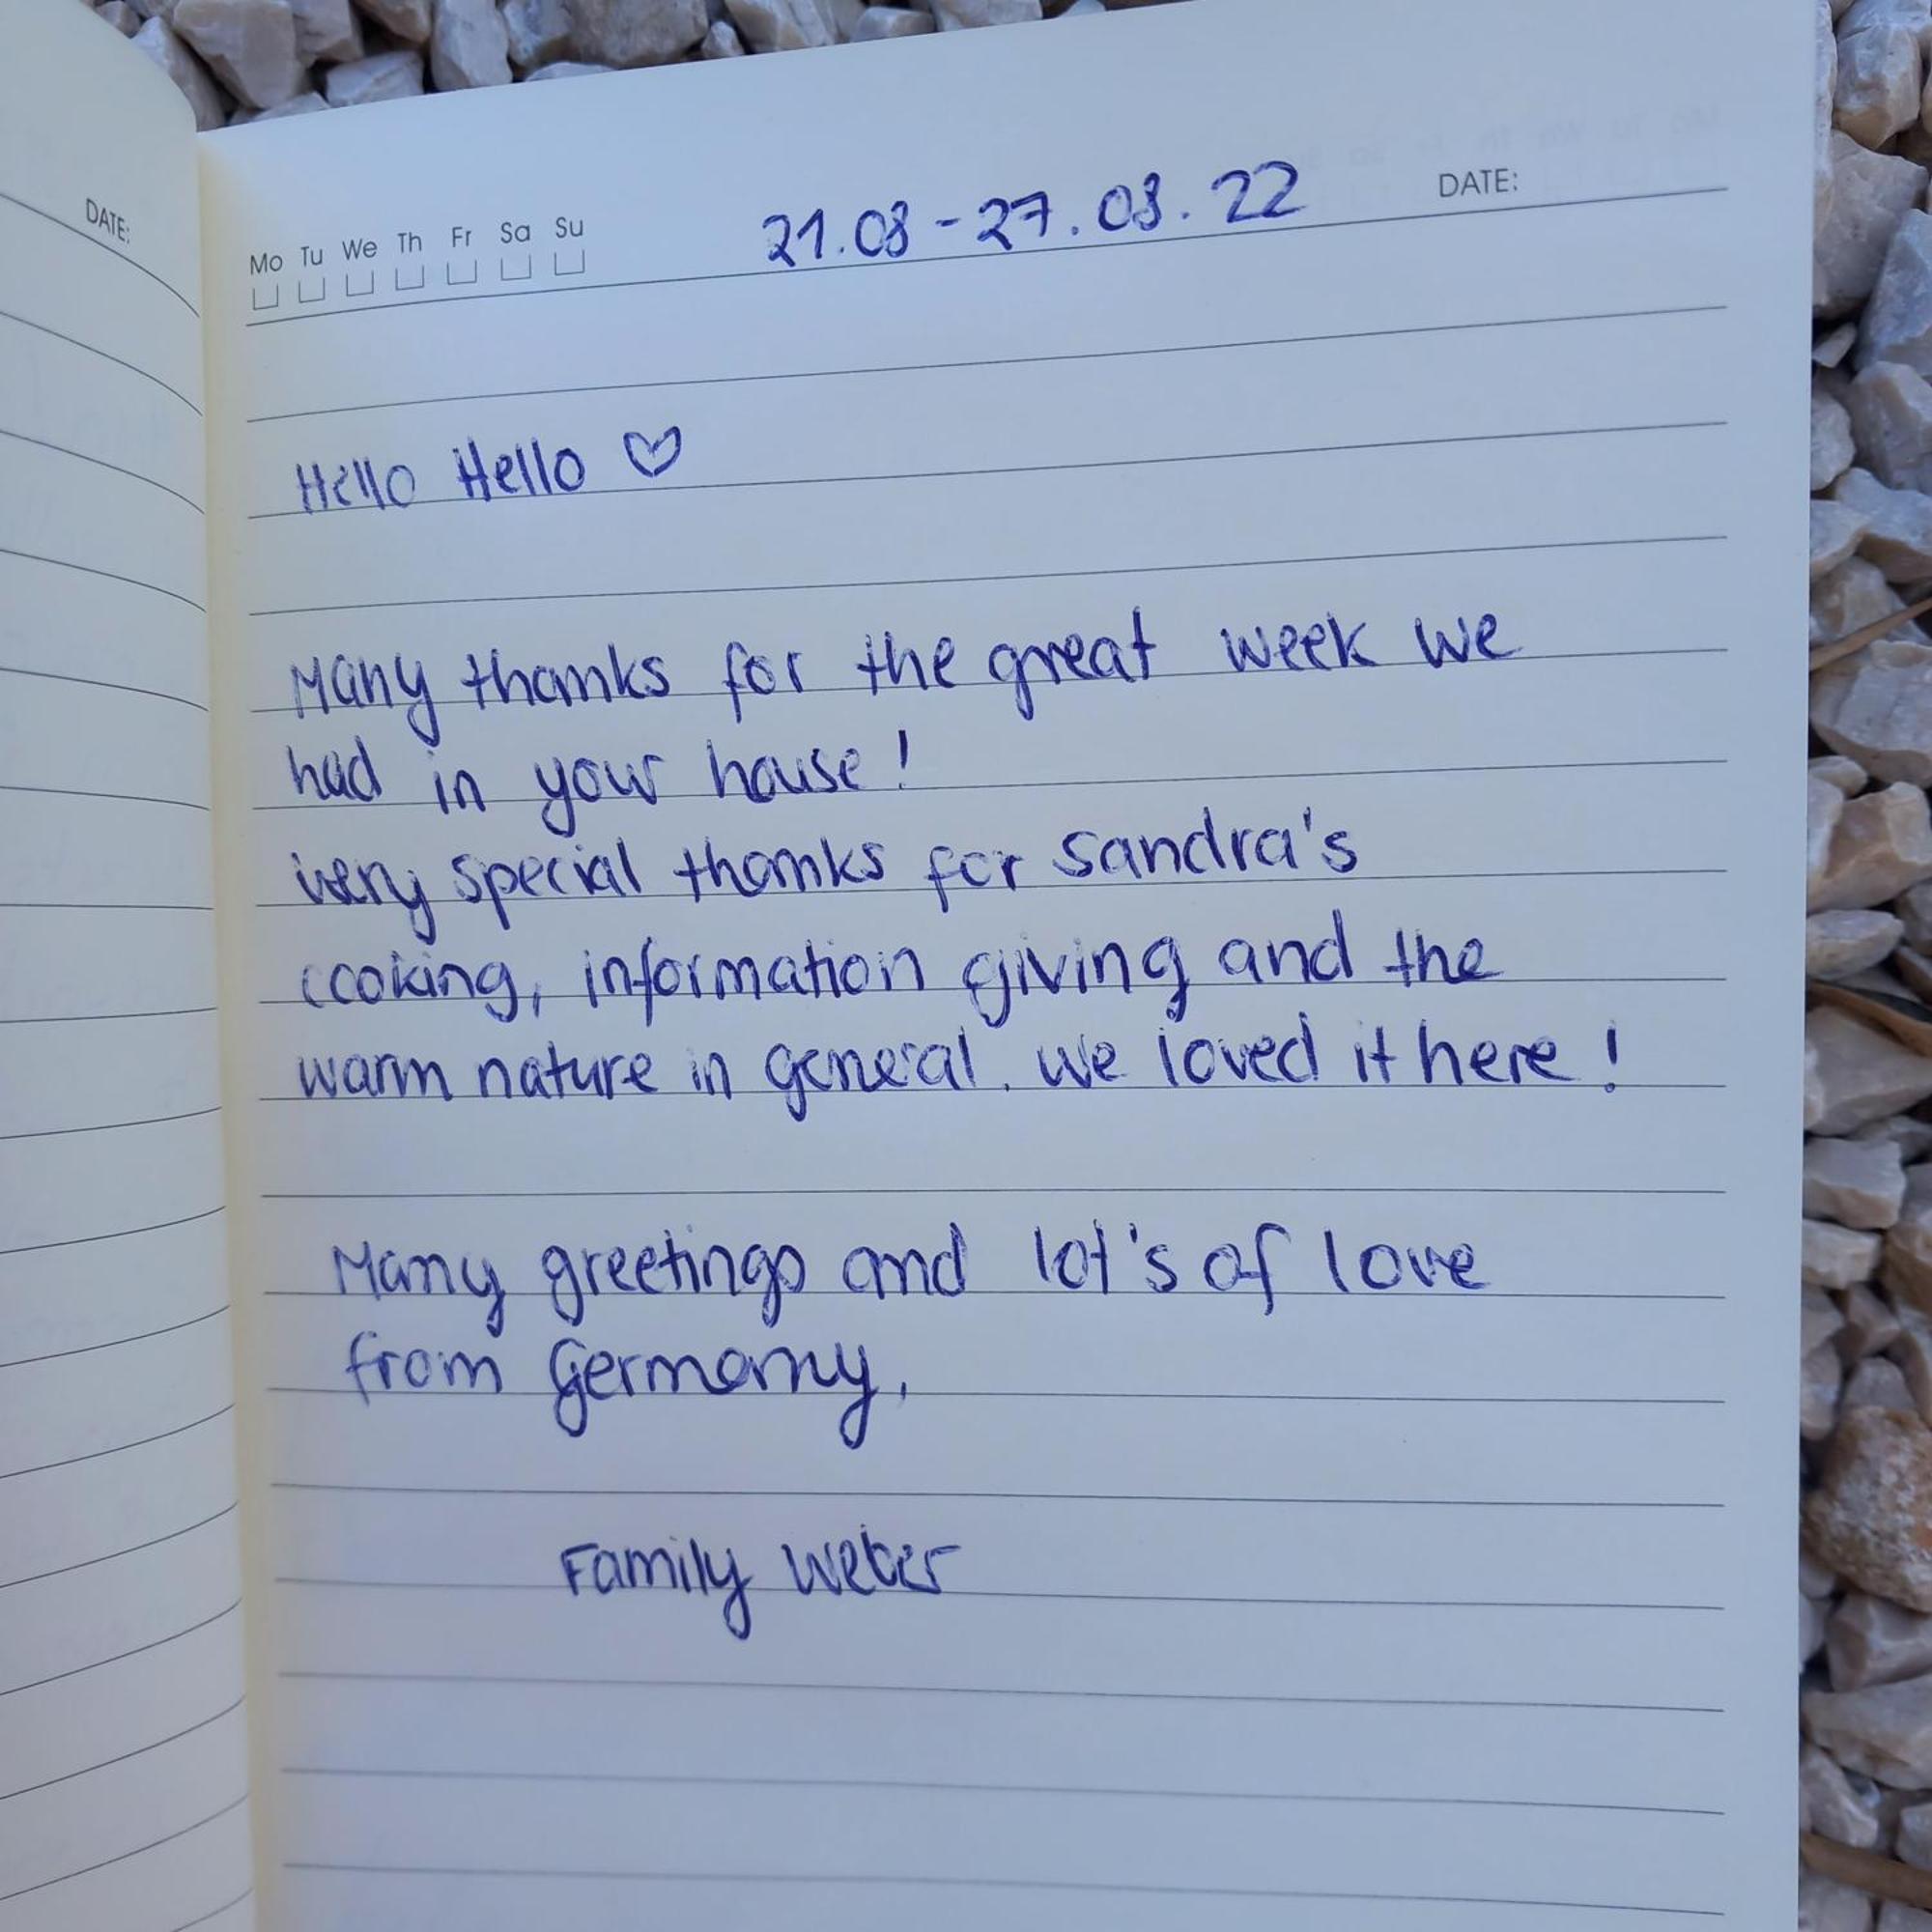 DATE:
Mo Tu We Th Fr Sa Su
21.08 - 27.08.22
DATE:
Hello Hello ♡
Many thanks for the great week we
had in your house!
very special thanks for Sandra's
cooking, information giving and the
warm nature in general. we loved it here!
Many greetings and lot's of love
from Germany,
Family Weber